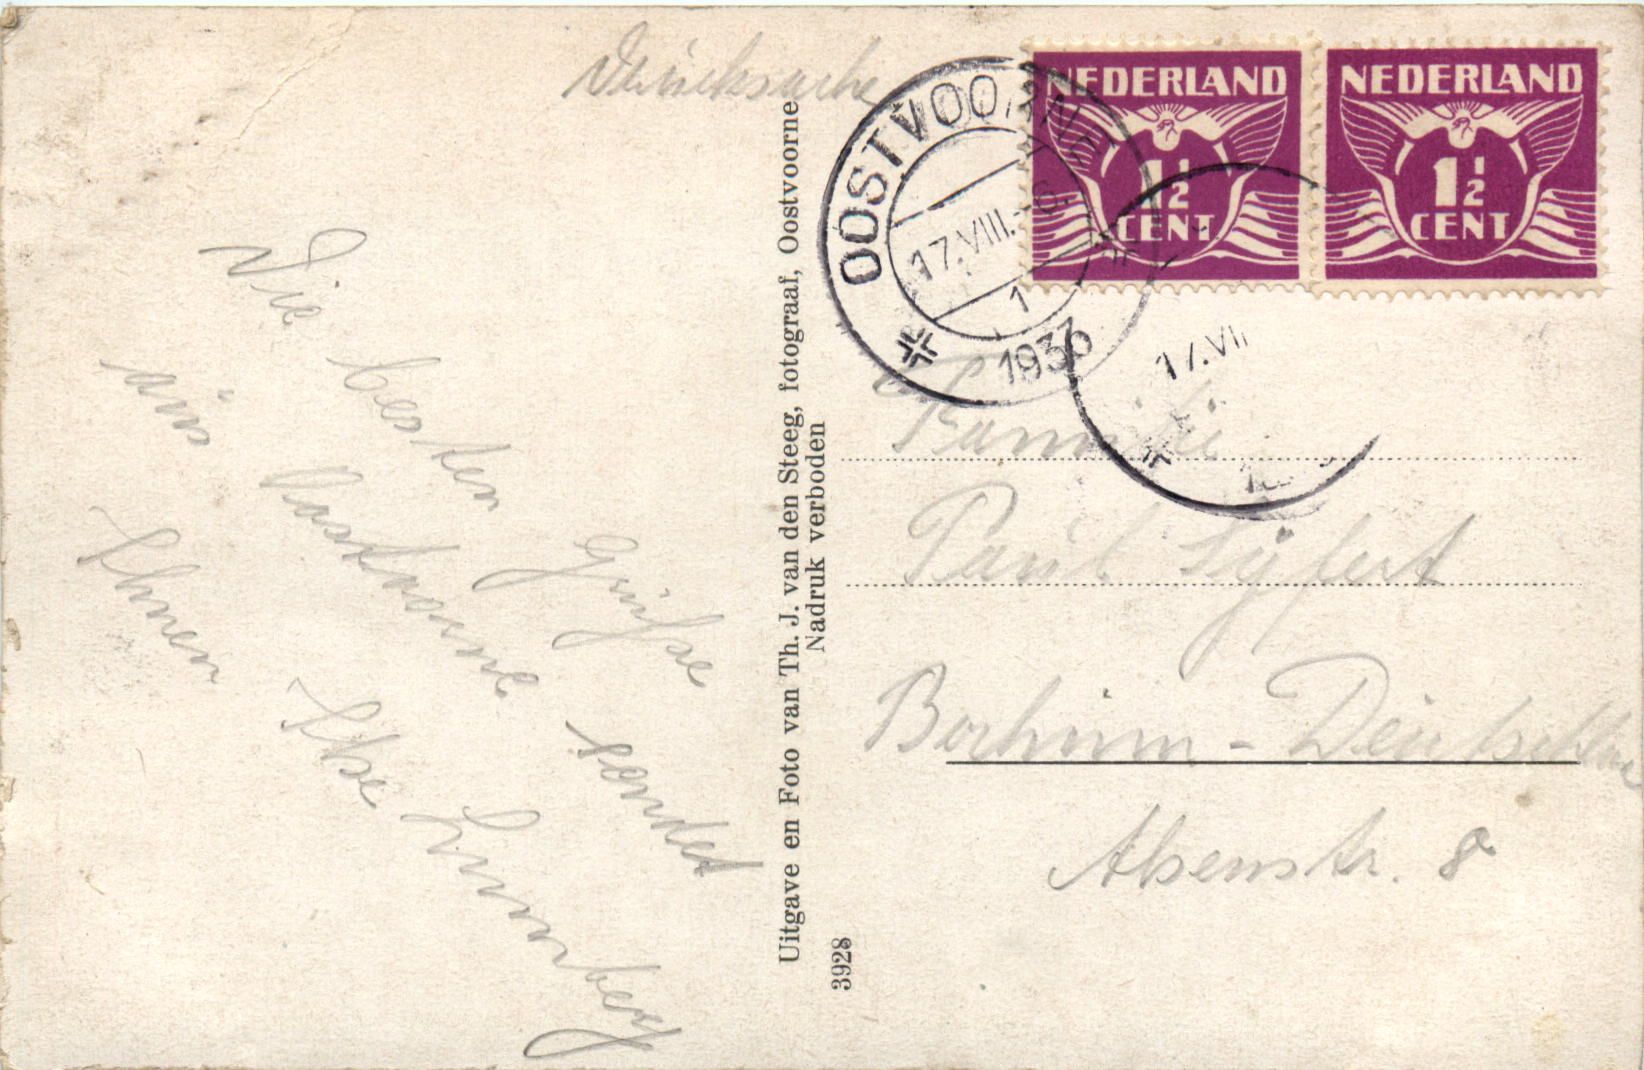 Drucksache
OOSTVOORNE
17.VIII.
1
1936
17.VII
NEDERLAND
1½
CENT
NEDERLAND
1½
CENT
Die besten Grüße
aus Oostvoorne sendet
Ihnen Ilse
Uitgave en Foto van Th. J. van den Steeg, fotograaf, Oostvoorne
Nadruk verboden
3928
Familie
Paul
Bochum - Deutschland
Alsenstr. 8